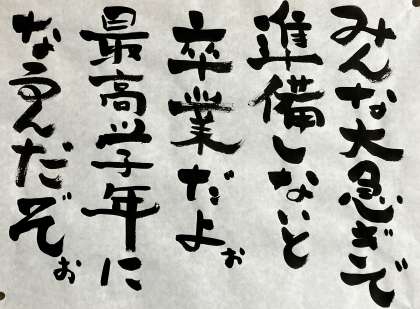 みんな大急ぎで
準備しないと
卒業だよぉ
最高学年に
なるんだぞぉ